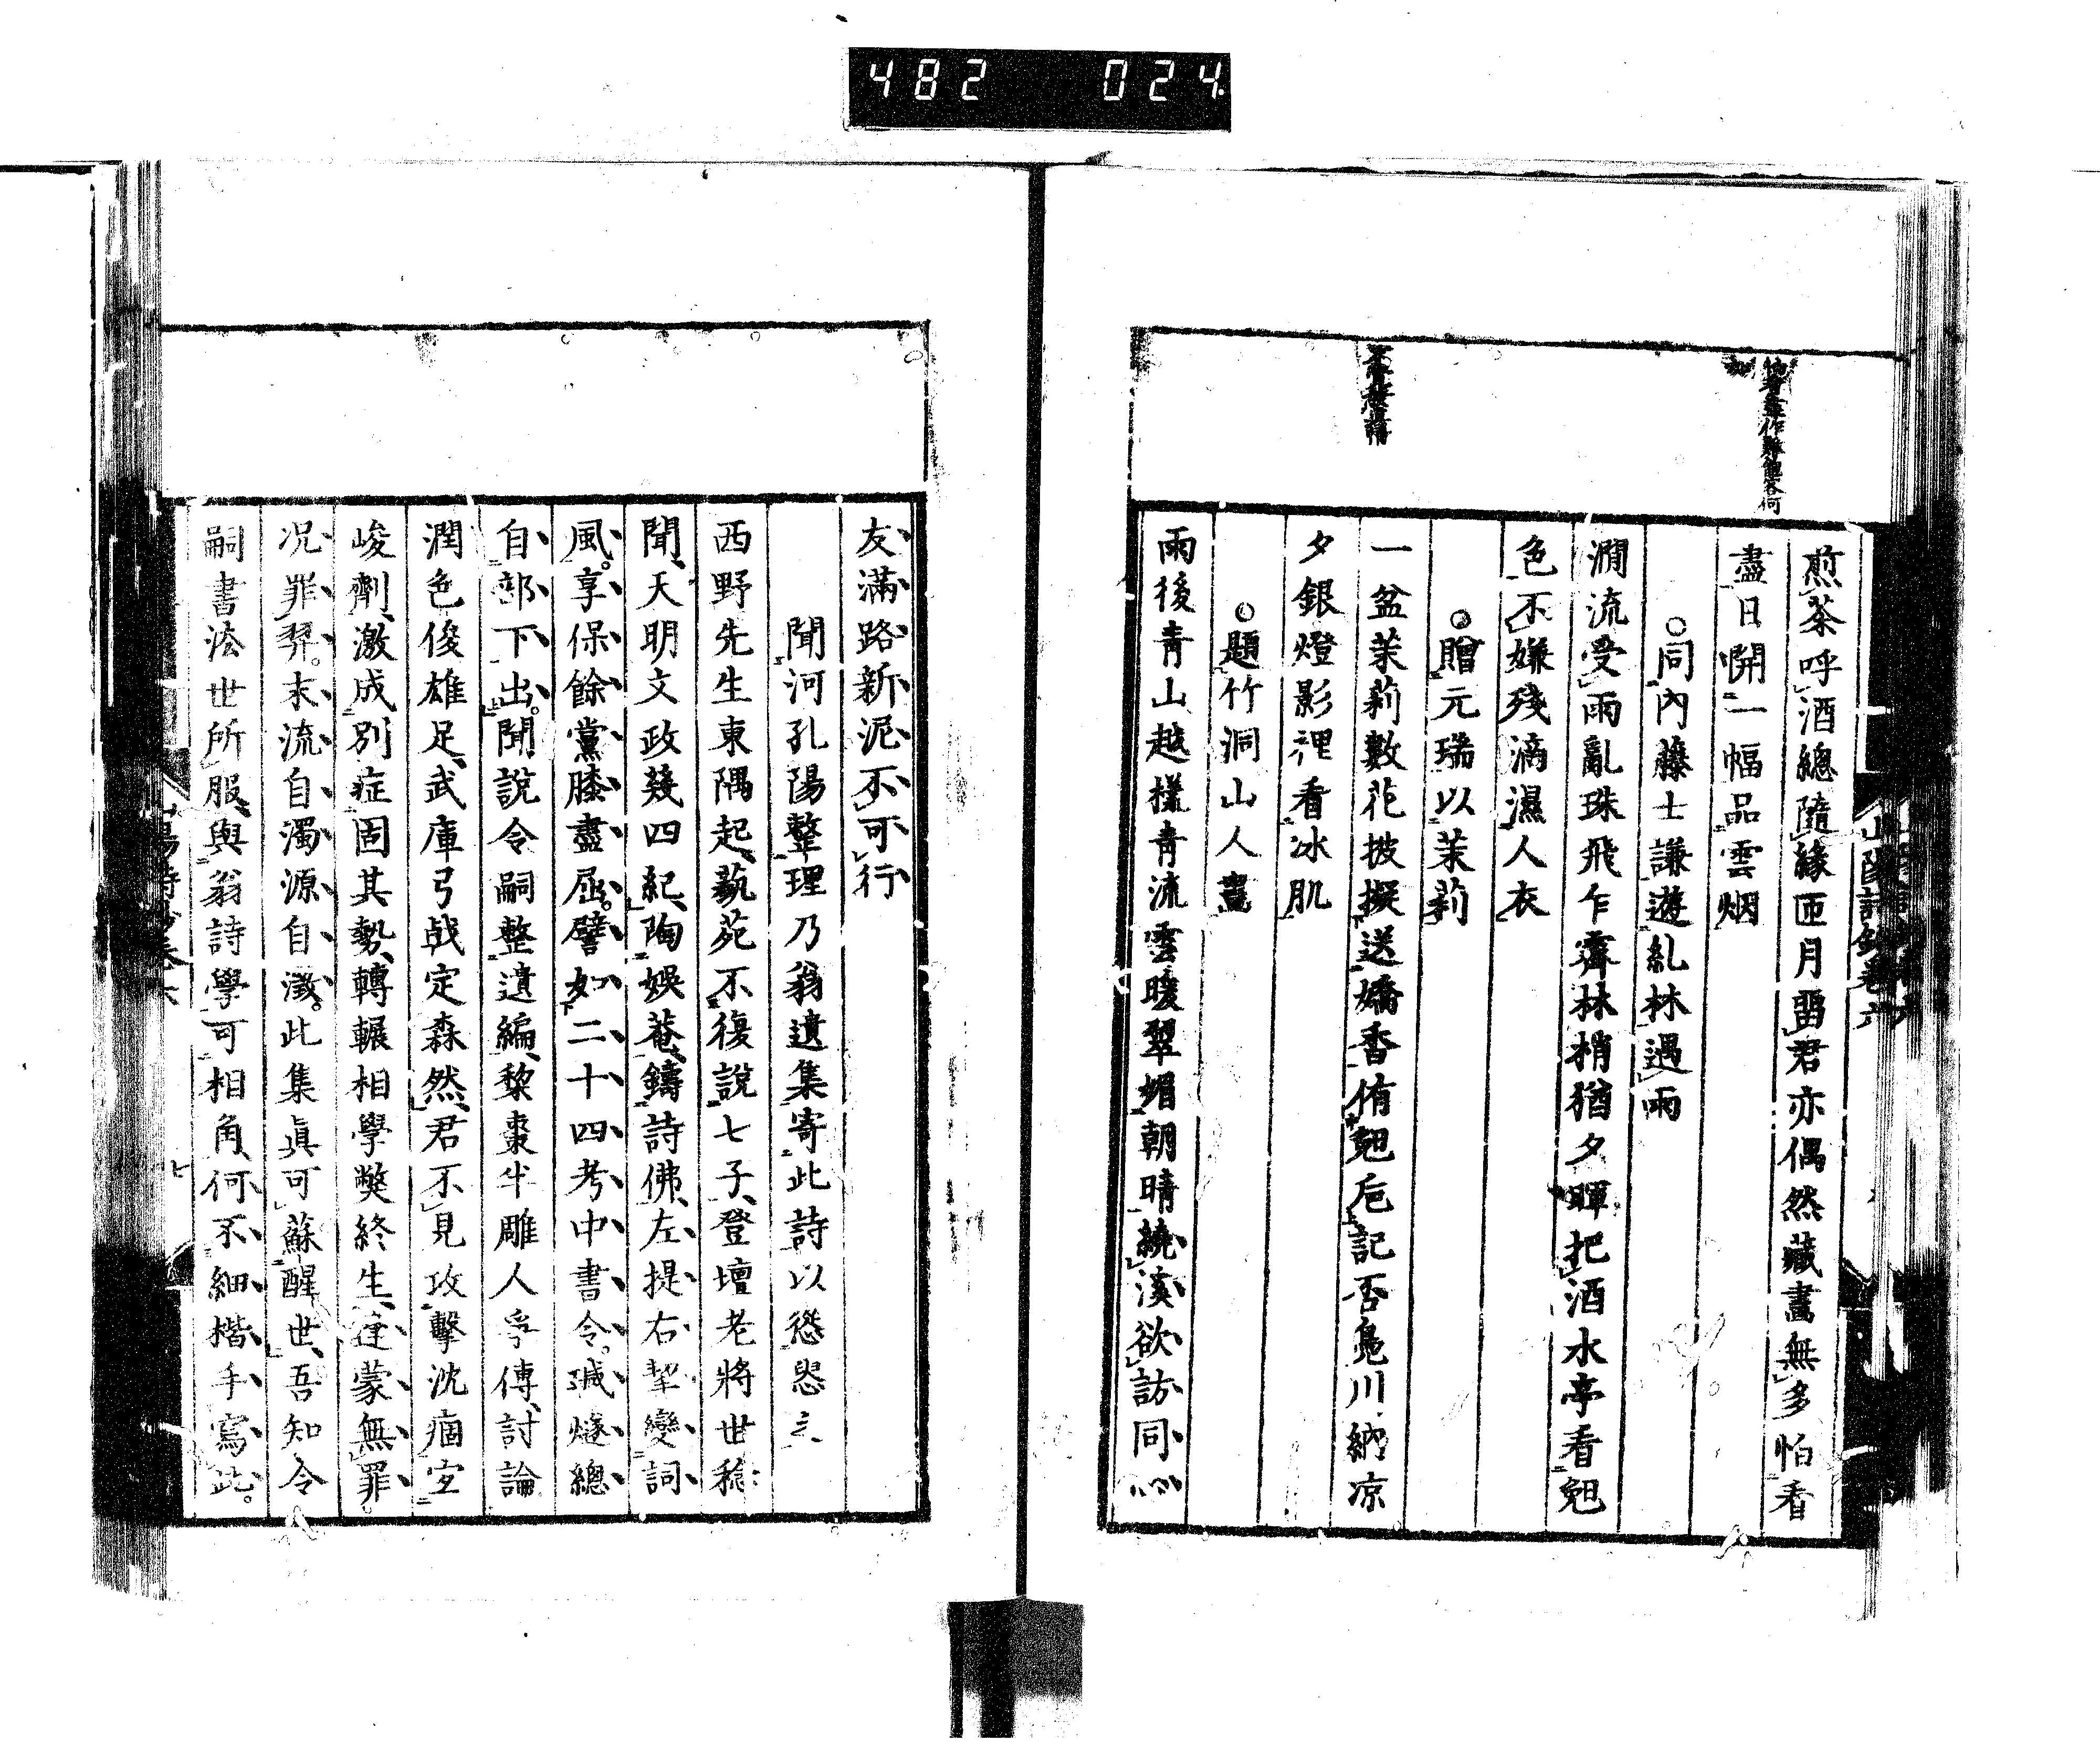 482 024
煎茶呼酒總隨緣匝月留君亦偶然藏畫無多怕看
盡日開一幅品雲烟
○同內藤士謙遊糺林遇雨
澗流受雨亂珠飛乍霽林梢猶夕暉把酒水亭看兜
色不嫌殘滴濕人衣
○贈元瑞以茉莉
一盆茉莉數花披擬送嬌香侑兜卮記否鳧川納凉
夕銀燈影裡看冰肌
○題竹洞山人畫
雨後青山越樣青流雲曖翠媚朝晴繞溪欲訪同心
友滿路新泥不可行
聞河孔陽整理乃翁遺集寄此詩以慫慂之
西野先生東隅起藝苑不復說七子登壇老將世稔
聞天明文政幾四紀陶娛菴鑄詩佛左提右挈變詞
風享保餘黨膝盡屈譬如二十四考中書令瑊燧總
自部下出聞說令嗣整遺編黎棗半雕人爭傳討論
潤色俊雄足武庫弓戟定森然君不見攻擊沈痼宜
峻劑激成別症固其勢轉輾相學弊終生逢蒙無罪
況罪羿末流自濁源自澂此集眞可蘇醒世吾知令
嗣書法世所服與翁詩學可相角何不細楷手寫此
山陽詩鈔卷六